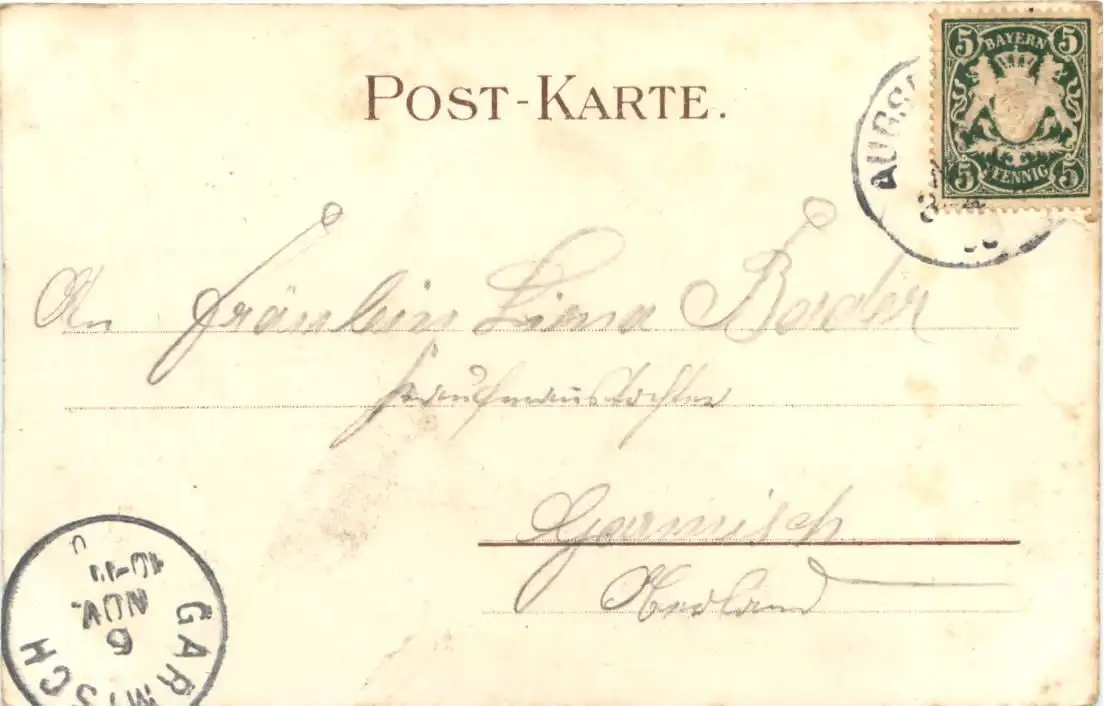 POST-KARTE.
5 BAYERN 5
5 PFENNIG 5
AUGS
An Fräulein Lina Bader
Kaufmannstochter
Garmisch
Oberland
GARMISCH
6
NOV.
10-11